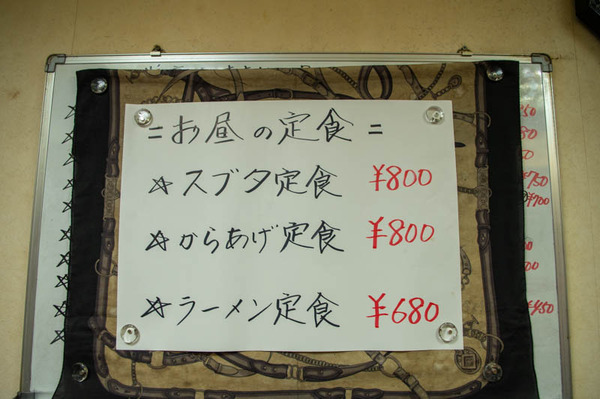 =お昼の定食=
☆スブタ定食 ¥800
☆からあげ定食 ¥800
☆ラーメン定食 ¥680
¥750
¥700